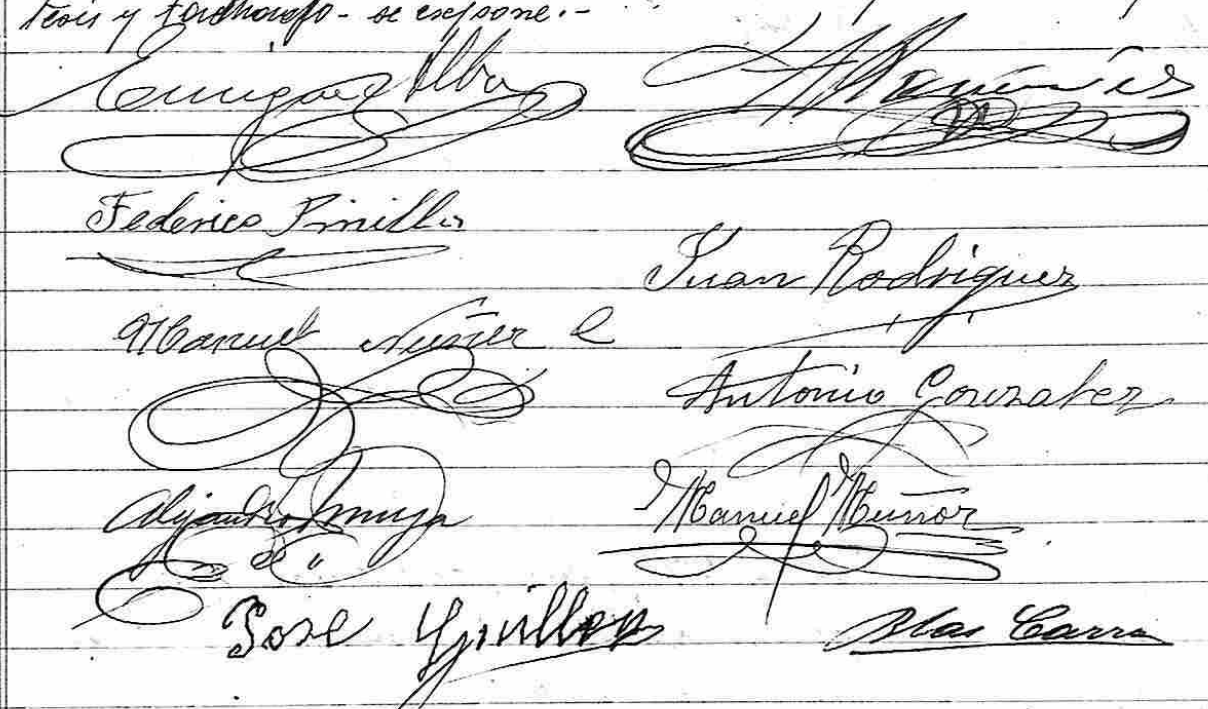 y se expone.-
Enrique Alba
Federico Pinilla
Juan Rodriguez
Manuel Nuñez C
Antonio Gonzalez
Alejandro
Manuel Muñoz
Jose Guillen
Blas Carra